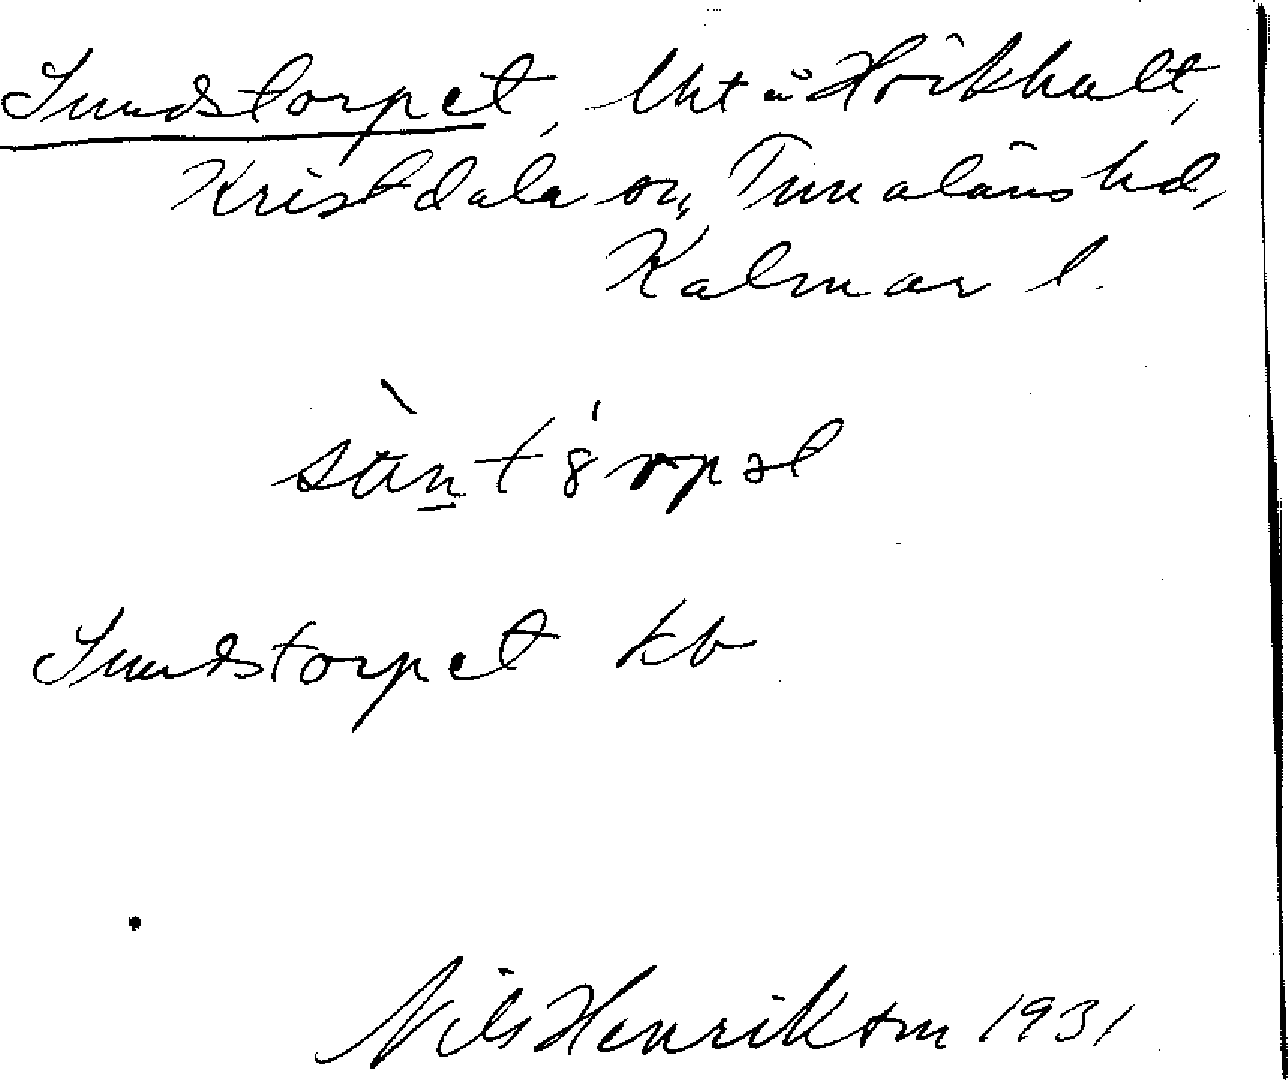 Sundstorpet, lht u Hökhult,
Kristdala sn, Tunaläns hd,
Kalmar l.
Sundstorpet kb
Nils Henrikson 1931